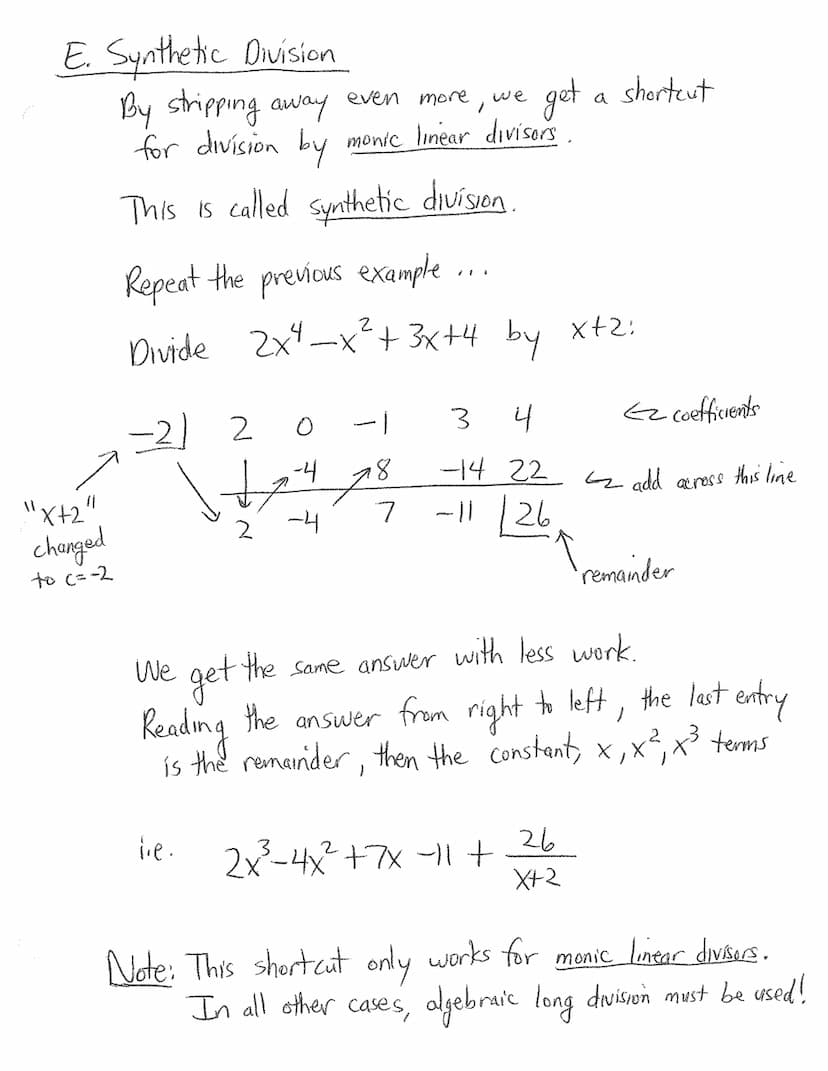 E. Synthetic Division
By stripping away even more, we get a shortcut
for division by monic linear divisors.
This is called synthetic division.
Repeat the previous example ...
Divide 2x⁴ – x² + 3x+4 by x+2:
-2| 2 0 -1 3 4 ⇐ coefficients
-4 8 -14 22 ⇐ add across this line
2 -4 7 -11 |26
"x+2"
changed
to c=-2
remainder
We get the same answer with less work.
Reading the answer from right to left, the last entry
is the remainder, then the constant, x, x², x³ terms
i.e. 2x³-4x²+7x-11 + 26/(x+2)
Note: This shortcut only works for monic linear divisors.
In all other cases, algebraic long division must be used!